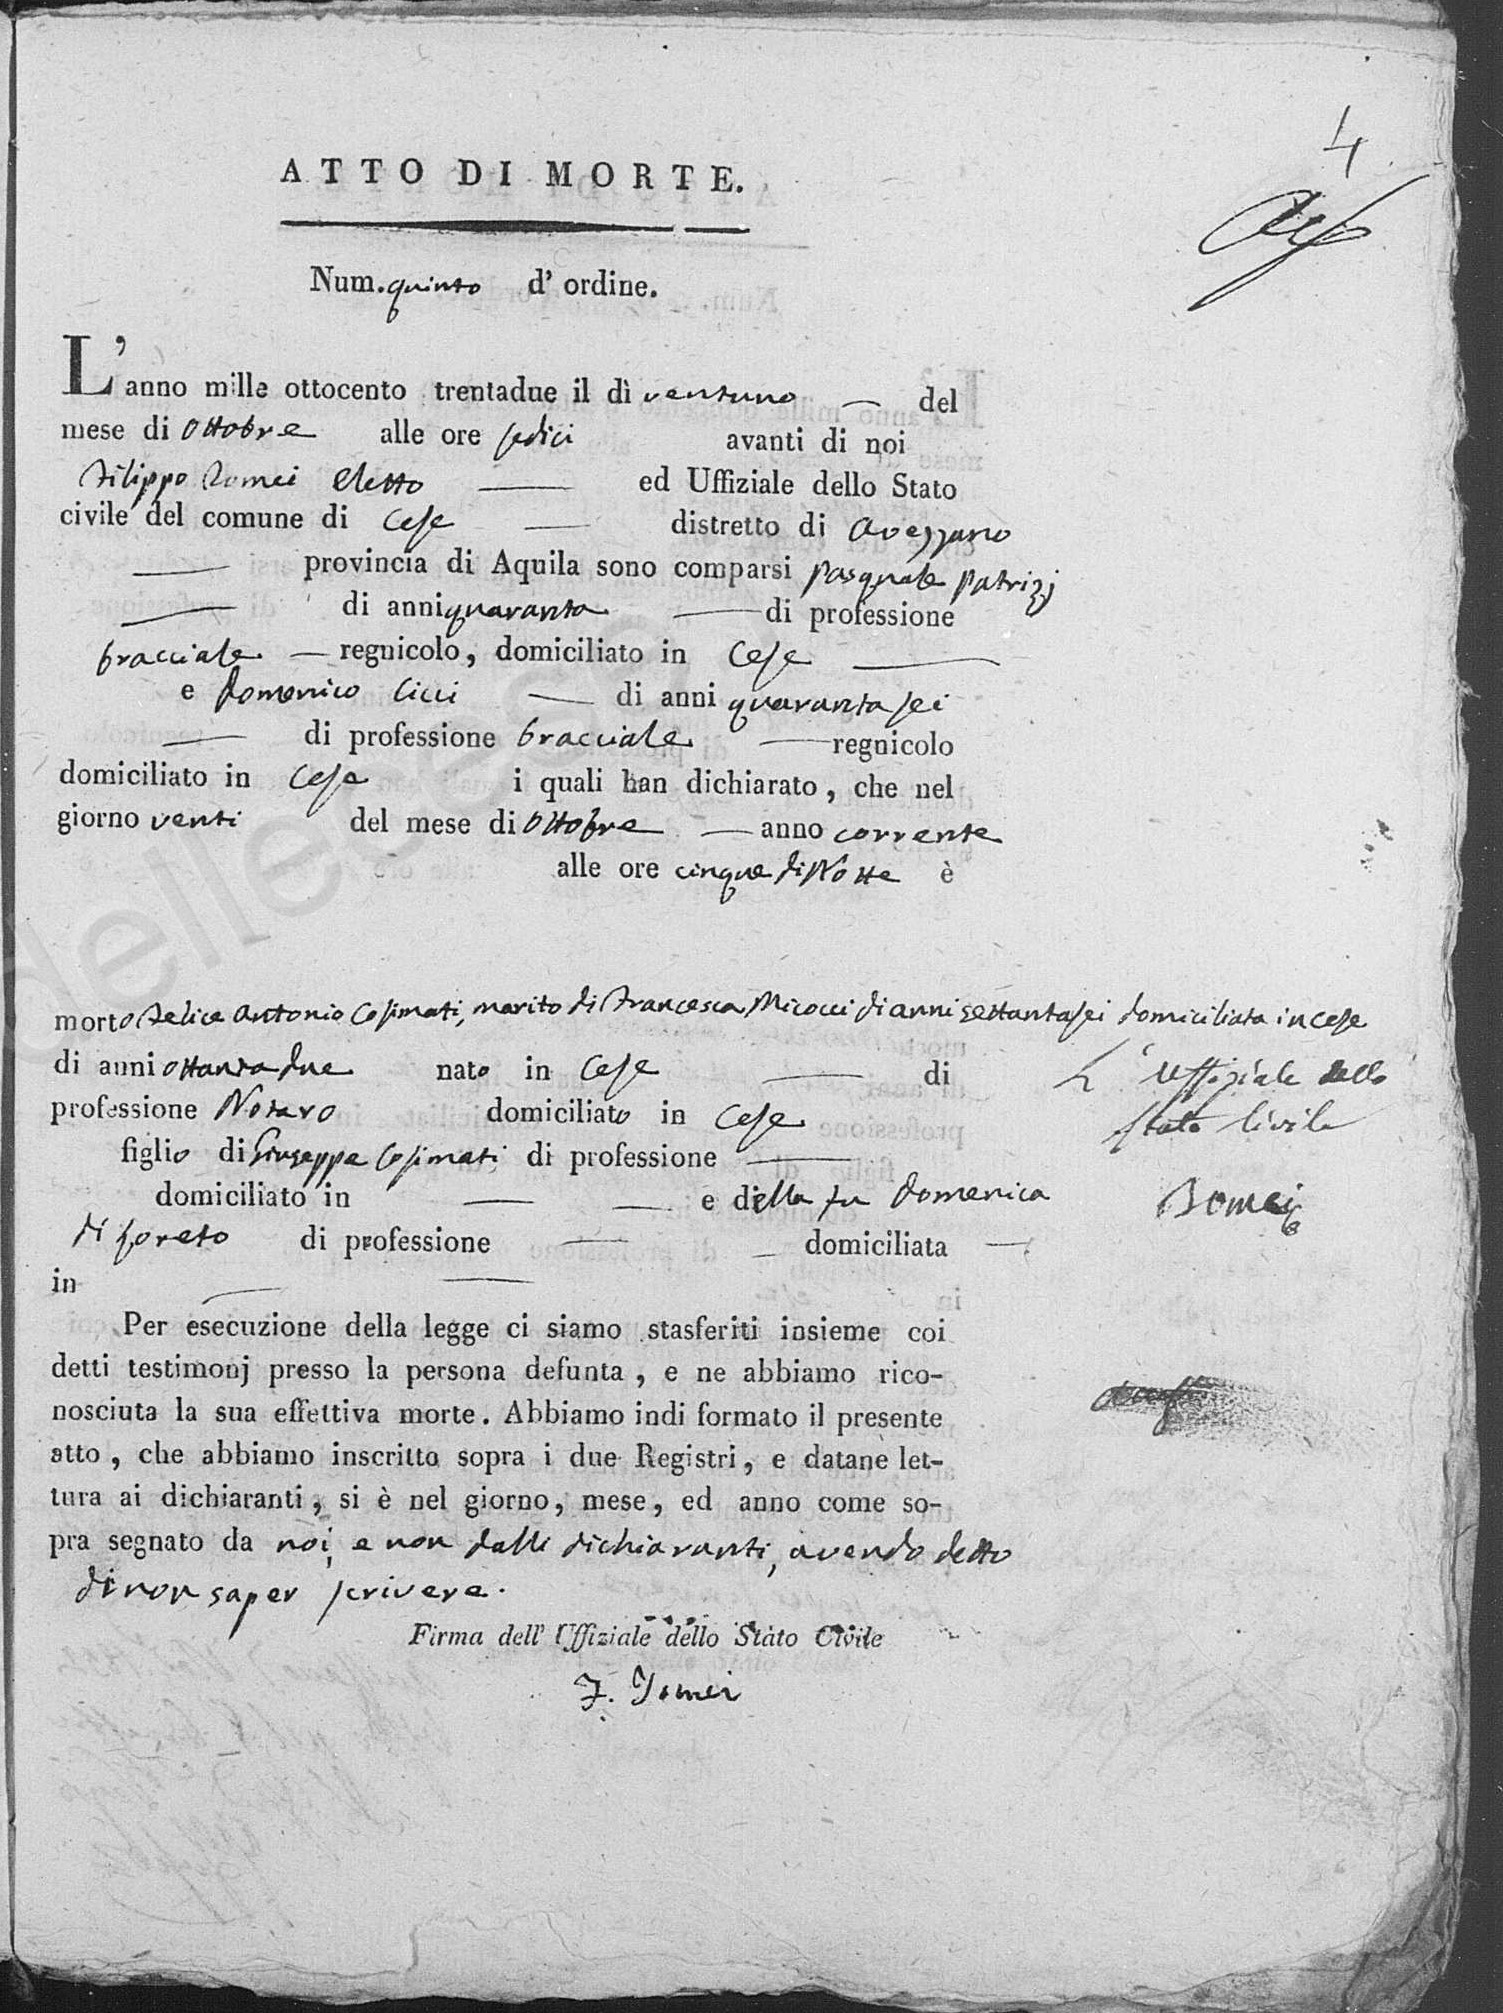 4
ATTO DI MORTE.
Num. quinto d' ordine.
L'anno mille ottocento trentadue il dì ventuno — del
mese di Ottobre alle ore sedici avanti di noi
Filippo Tomei eletto — ed Uffiziale dello Stato
civile del comune di Cese — distretto di Avezzano
— provincia di Aquila sono comparsi Pasquale Patrizj
— di anni quaranta — di professione
bracciale — regnicolo, domiciliato in Cese —
e Domenico Cicci — di anni quarantasei
— di professione bracciale — regnicolo
domiciliato in Cese i quali han dichiarato, che nel
giorno venti del mese di Ottobre — anno corrente
alle ore cinque di Notte è
morto Felice Antonio Cosimati, marito di Francesca Micocci di anni settantasei domiciliata in Cese
di anni ottantadue nato in Cese — di
professione Notaro domiciliato in Cese
figlio di Giuseppe Cosimati di professione —
domiciliato in — — e della fu Domenica
di Loreto di professione — — domiciliata —
in — —
L'Uffiziale dello
Stato Civile
Tomei
Per esecuzione della legge ci siamo stasferiti insieme coi
detti testimonj presso la persona defunta, e ne abbiamo rico-
nosciuta la sua effettiva morte. Abbiamo indi formato il presente
atto, che abbiamo inscritto sopra i due Registri, e datane let-
tura ai dichiaranti, si è nel giorno, mese, ed anno come so-
pra segnato da noi, e non dalli dichiaranti, avendo detto
di non saper scrivere.
Firma dell' Uffiziale dello Stato Civile
F. Tomei